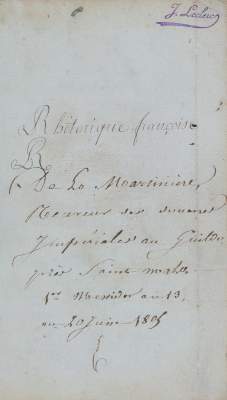 J. Leclerc
Rhétorique françoise
R
De La Martinière,
Receveur des douanes
Impériales au Guildo
près Saint malo.
1er Messidor an 13,
ou 20 Juin 1805